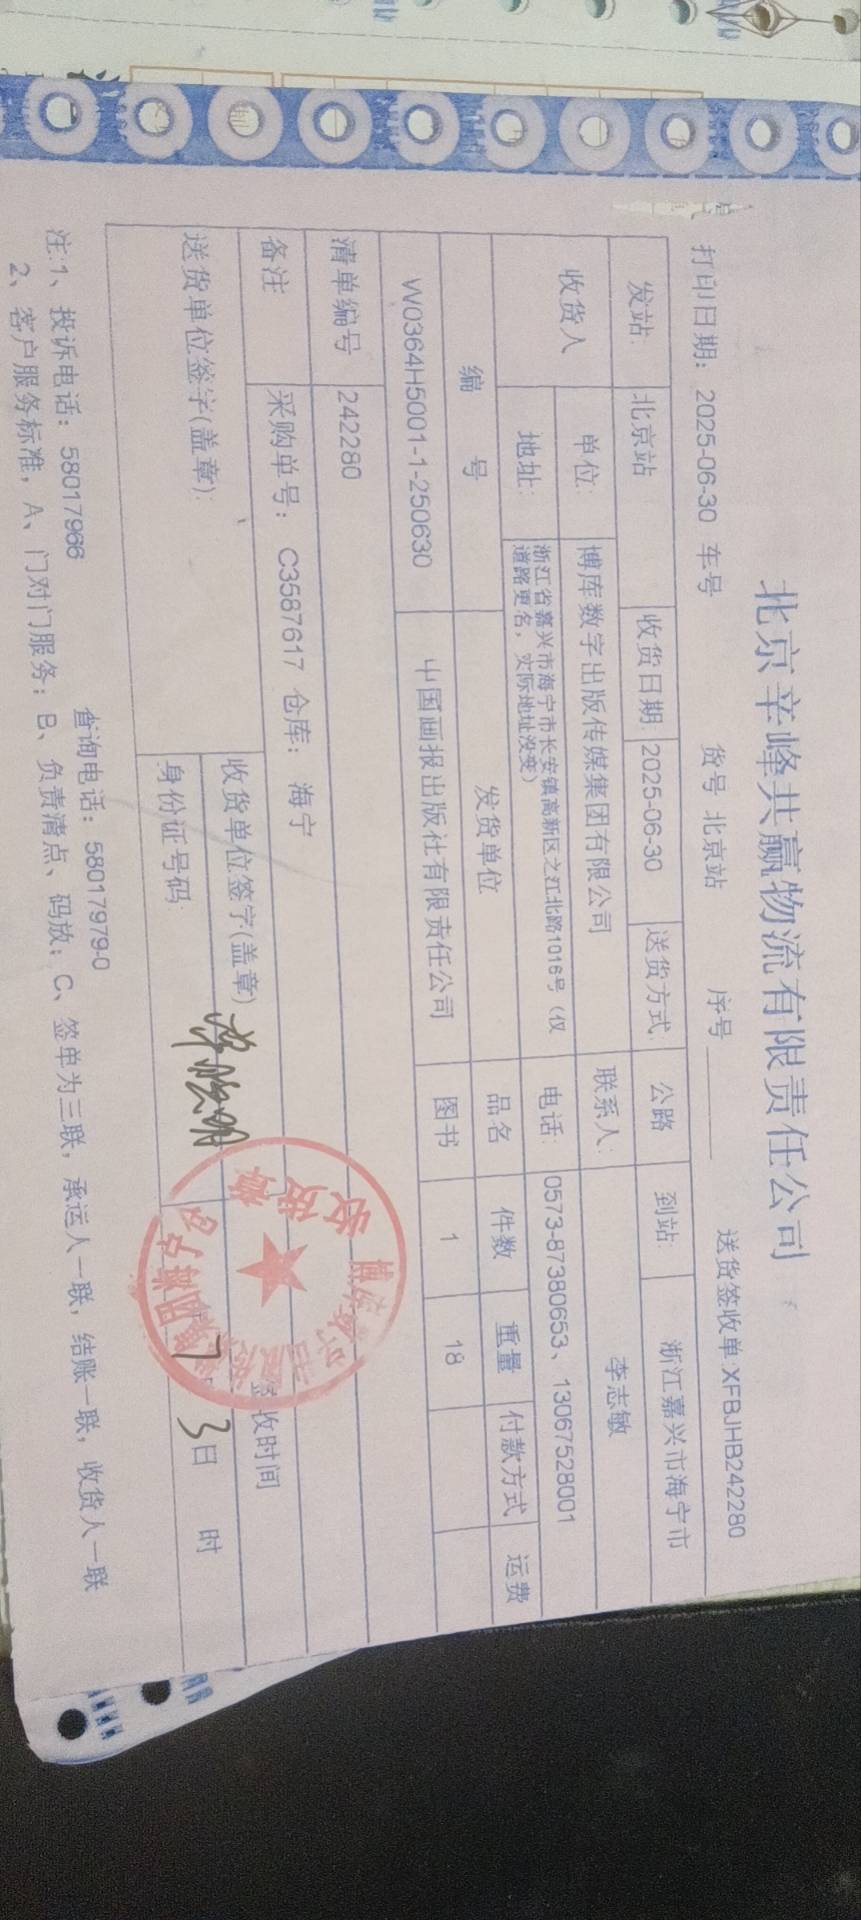 北京辛峰共赢物流有限责任公司
送货签收单:XFBJHB242280
打印日期: 2025-06-30 车号 货号 北京站 序号
发站: 北京站 收货日期: 2025-06-30 送货方式: 公路 到站: 浙江嘉兴市海宁市
收货人 单位: 博库数字出版传媒集团有限公司 联系人: 李志敏
地址: 浙江省嘉兴市海宁市长安镇高新区之江北路1016号（仅
道路更名，实际地址没变） 电话: 0573-87380653、13067528001
编 号 发货单位 品名 件数 重量 付款方式 运费
VV0364H5001-1-250630 中国画报出版社有限责任公司 图书 1 18
清单编号 242280
备注 采购单号: C3587617 仓库: 海宁
送货单位签字(盖章): 收货单位签字(盖章) 签收时间
身份证号码: 7 3日 时
收货章
注:1、投诉电话: 58017966 查询电话: 58017979-0
2、客户服务标准，A、门对门服务; B、负责清点、码放; C、签单为三联，承运人一联，结账一联，收货人一联